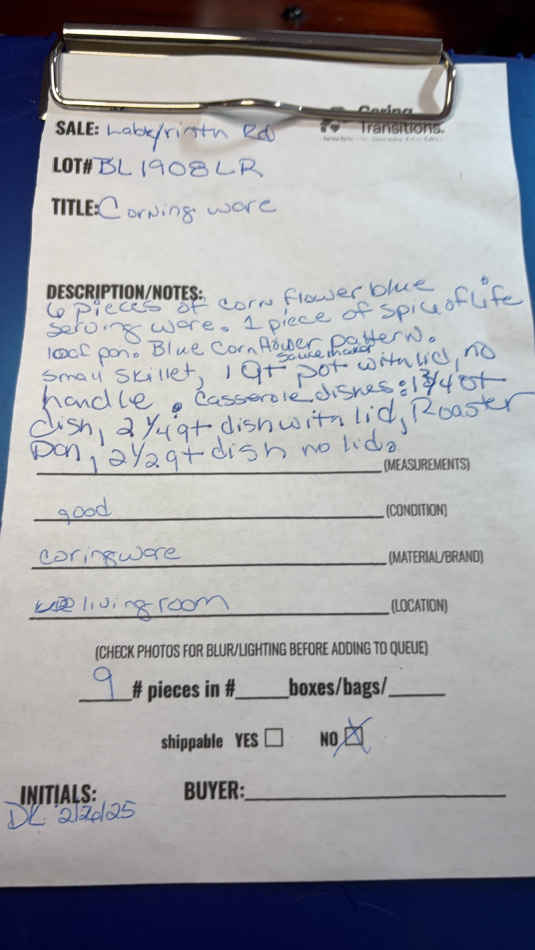 Caring
Transitions.
SALE: Labyrinth Rd
LOT# BL1908LR
TITLE: Corning ware
DESCRIPTION/NOTES:
6 pieces of corn flower blue
serving ware. 1 piece of spice of life
loaf pan. Blue Corn flower pattern.
saucemaker
small skillet, 1 qt pot with lid, no
handle. Casserole dishes: 1 3/4 qt
dish, 2 1/4 qt dish with lid, Roaster
pan, 2 1/2 qt dish no lid.
(MEASUREMENTS)
good (CONDITION)
coringware (MATERIAL/BRAND)
living room (LOCATION)
(CHECK PHOTOS FOR BLUR/LIGHTING BEFORE ADDING TO QUEUE)
9 # pieces in #_____boxes/bags/_____
shippable YES ☐ NO ☒
INITIALS: BUYER:
DL 2/26/25